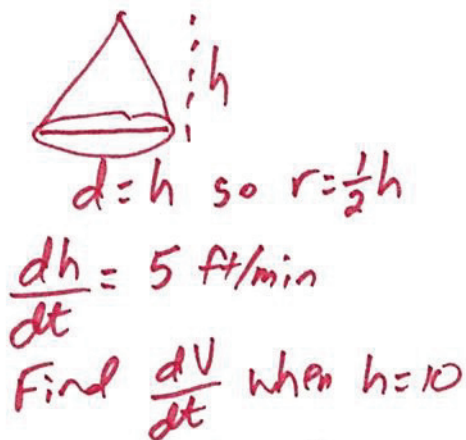 h
d=h so r=½h
dh/dt = 5 ft/min
Find dV/dt when h=10